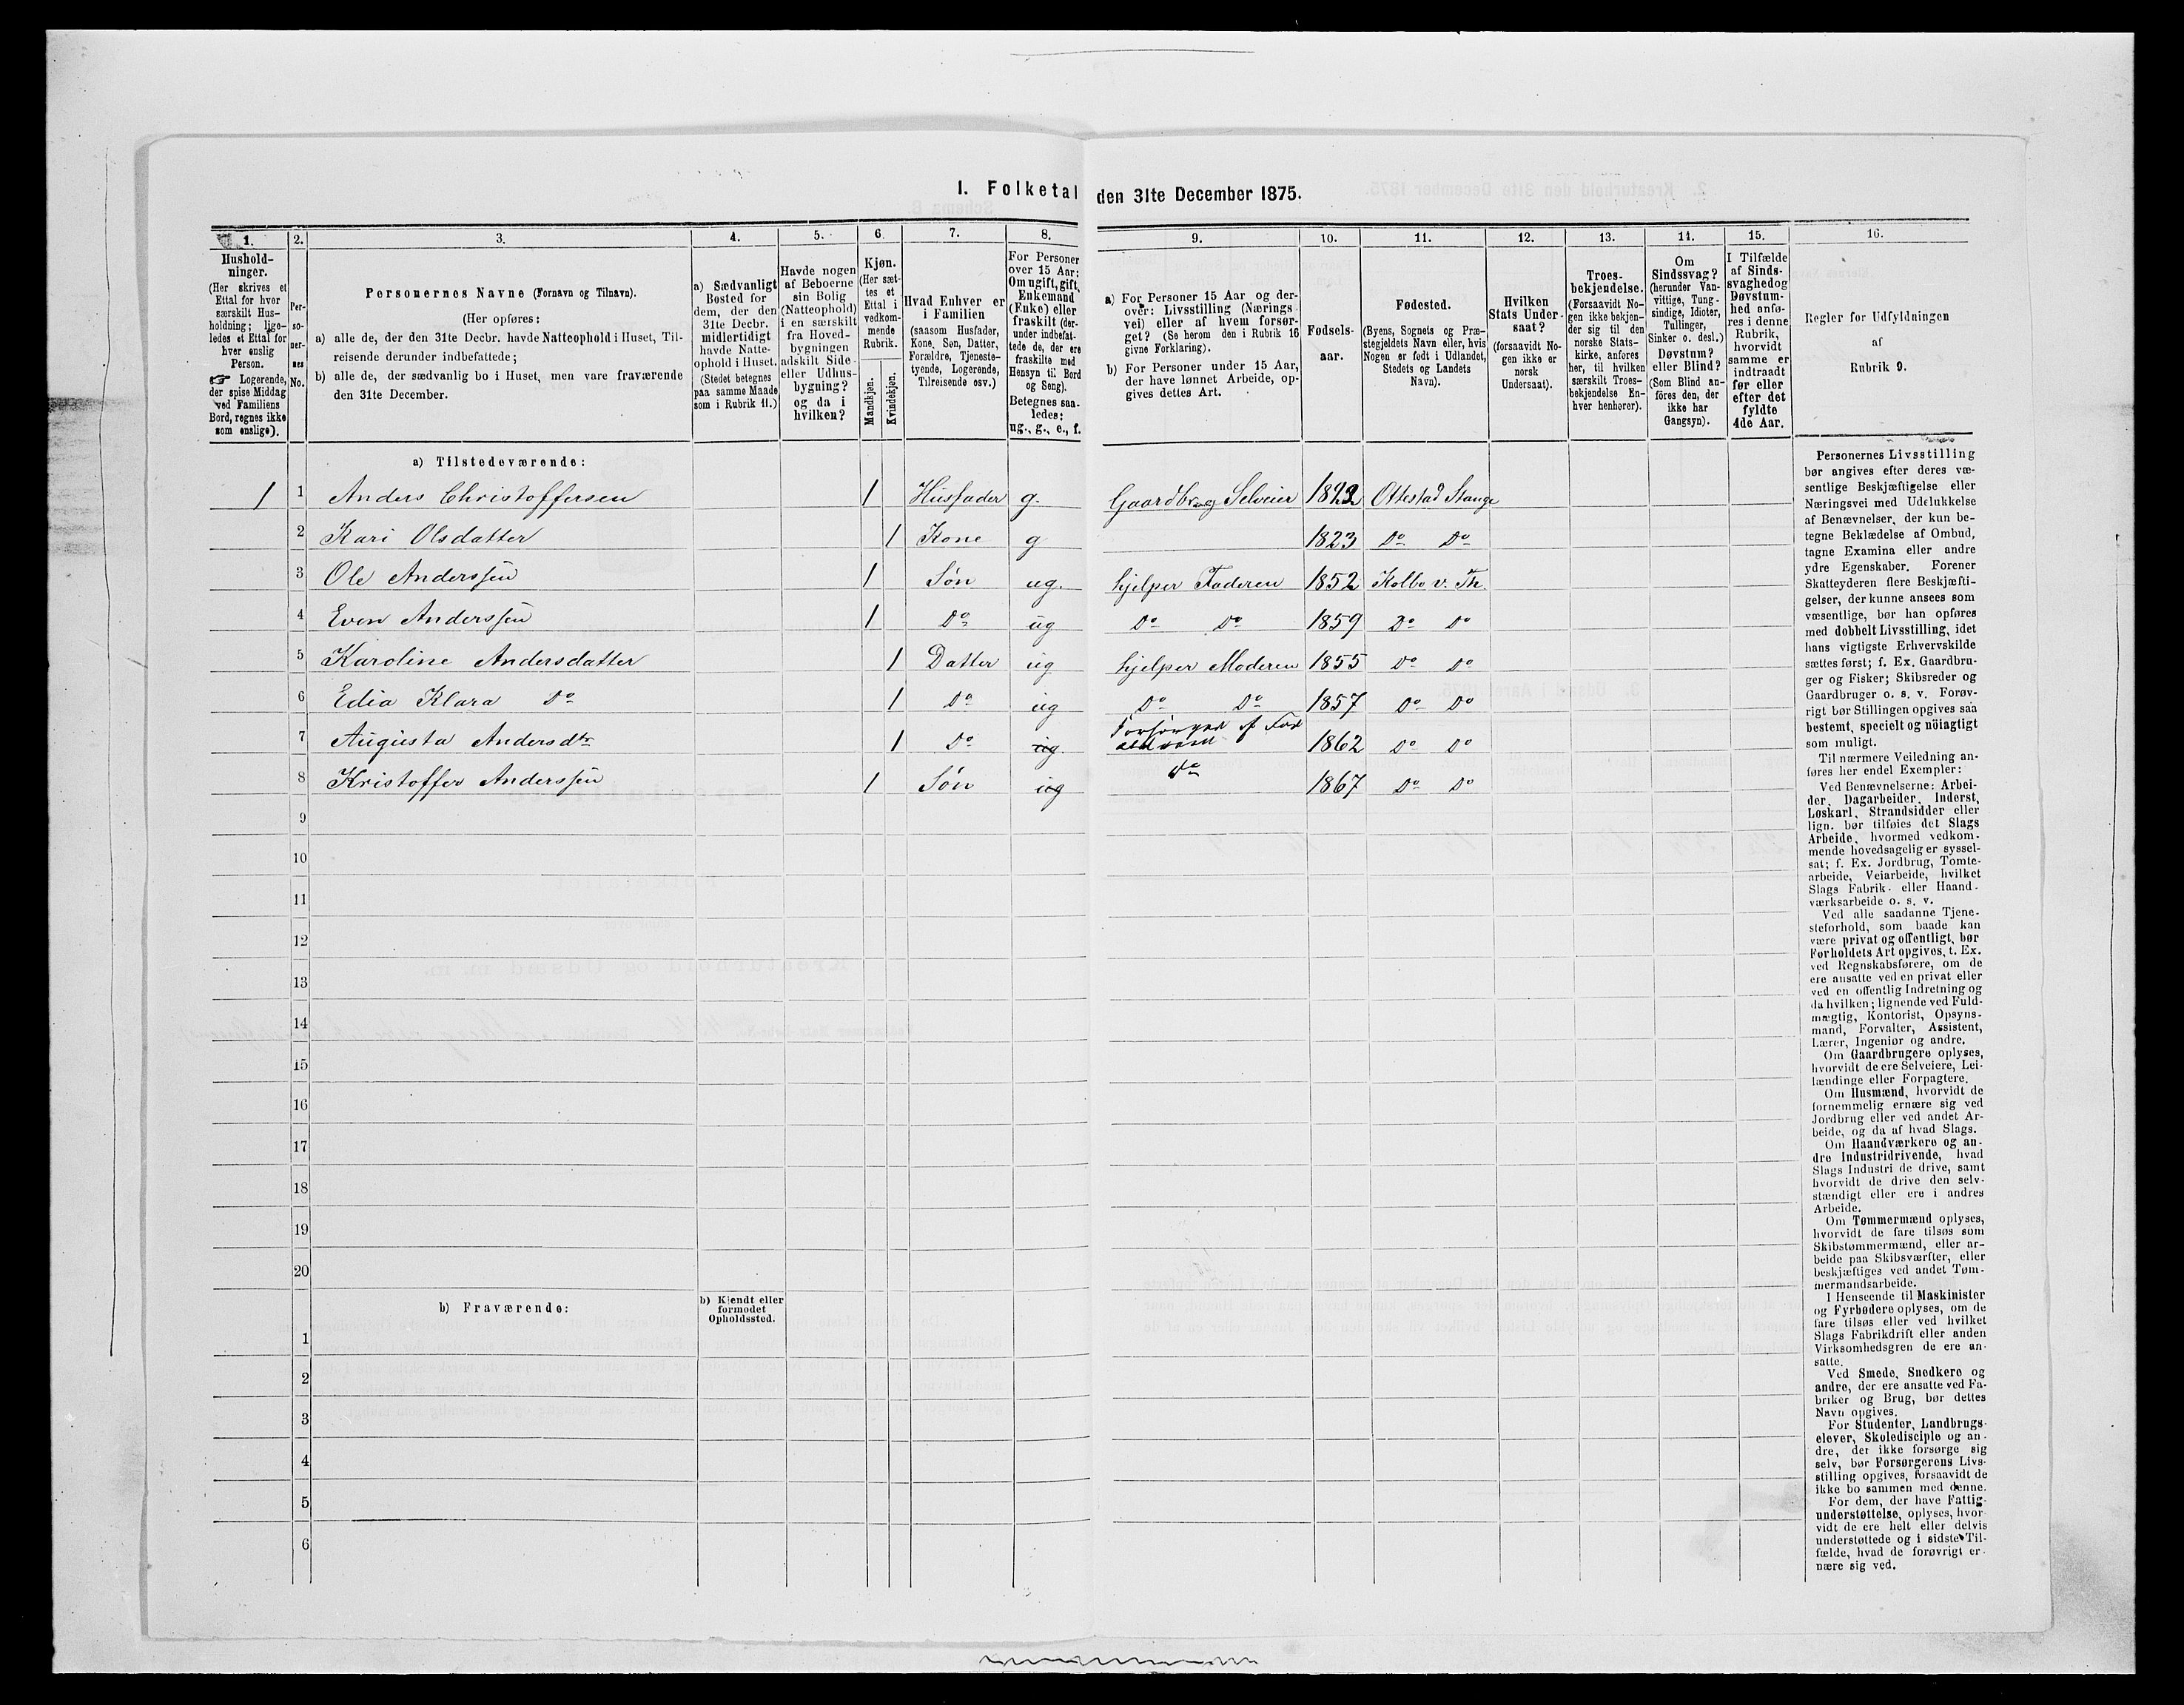 I. Folketal den 31te December 1875.
1.
Hushold-
ninger.
(Her skrives et
Ettal for hver
særskilt Hus-
holdning; lige-
ledes et Ettal for
hver enslig
Person.
☞ Logerende,
der spise Middag
ved Familiens
Bord, regnes ikke
som enslige).
2.
Per-
so-
ner-
nes
No.
3.
Personernes Navne (Fornavn og Tilnavn).
(Her opføres:
a) alle de, der den 31te Decbr. havde Natteophold i Huset, Til-
reisende derunder indbefattede;
b) alle de, der sædvanlig bo i Huset, men vare fraværende
den 31te December.
4.
a) Sædvanligt
Bosted for
dem, der den
31te Decbr.
midlertidigt
havde Natte-
ophold i Huset.
(Stedet betegnes
paa samme Maade
som i Rubrik 11.)
5.
Havde nogen
af Beboerne
sin Bolig
(Natteophold)
i en særskilt
fra Hoved-
bygningen
adskilt Side-
eller Udhus-
bygning?
og da i
hvilken?
6.
Kjøn.
(Her sæt-
tes et
Ettal i
vedkom-
mende
Rubrik.
Mandkjøn.
Kvindekjøn.
7.
Hvad Enhver er
i Familien
(saasom Husfader,
Kone, Søn, Datter,
Forældre, Tjeneste-
tyende, Logerende,
Tilreisende osv.)
8.
For Personer
over 15 Aar:
Om ugift, gift,
Enkemand
(Enke) eller
fraskilt (der-
under indbefat-
tede de, der ere
fraskilte med
Hensyn til Bord
og Seng).
Betegnes saa-
ledes:
ug., g., e., f.
9.
a) For Personer 15 Aar og der-
over: Livsstilling (Nærings-
vei) eller af hvem forsør-
get? (Se herom den i Rubrik 16
givne Forklaring).
b) For Personer under 15 Aar,
der have lønnet Arbeide, op-
gives dettes Art.
10.
Fødsels-
aar.
11.
Fødested.
(Byens, Sognets og Præ-
stegjeldets Navn eller, hvis
Nogen er født i Udlandet,
Stedets og Landets
Navn).
12.
Hvilken
Stats Under-
saat?
(forsaavidt No-
gen ikke er
norsk
Undersaat).
13.
Troes-
bekjendelse.
(Forsaavidt No-
gen ikke bekjen-
der sig til den
norske Stats-
kirke, anføres
her, til hvilken
særskilt Troes-
bekjendelse En-
hver henhører).
14.
Om
Sindssvag?
(herunder Van-
vittige, Tung-
sindige, Idioter,
Tullinger,
Sinker o. desl.)
Døvstum?
eller Blind?
(Som Blind an-
föres den, der
ikke har
Gangsyn).
15.
I Tilfælde
af Sinds-
svaghed og
Døvstum-
hed anfø-
res i denne
Rubrik,
hvorvidt
samme er
indtraadt
før eller
efter det
fyldte
4de Aar.
16.
Regler for Udfyldningen
af
Rubrik 9.
a) Tilstedeværende:
1 1 Anders Christoffersen 1 Husfader g. Gaardbrug Selveier 1823 Ottestad Stange
2 Kari Olsdatter 1 Kone g 1823 Do Do
3 Ole Anderssen 1 Søn ug. hjelper Faderen 1852 Kolbo v. Th.
4 Even Anderssen 1 Do ug Do Do 1859 Do Do
5 Karoline Andersdatter 1 Datter ug hjelper Moderen 1855 Do Do
6 Edia Klara Do 1 Do ug Do Do 1857 Do Do
7 Augusta Andersdtr 1 Do ug. 1862 Do Do
8 Kristoffer Anderssen 1 Søn ug Do 1867 Do Do
9
10
11
12
13
14
15
16
17
18
19
20
b) Fraværende:
b) Kjendt eller
formodet
Opholdssted.
1
2
3
4
5
6
Personernes Livsstilling
bør angives efter deres væ-
sentlige Beskjæftigelse eller
Næringsvei med Udelukkelse
af Benævnelser, der kun be-
tegne Beklædelse af Ombud,
tagne Examina eller andre
ydre Egenskaber. Forener
Skatteyderen flere Beskjæfti-
gelser, der kunne ansees som
væsentlige, bør han opføres
med dobbelt Livsstilling, idet
hans vigtigste Erhvervskilde
sættes først; f. Ex. Gaardbru-
ger og Fisker; Skibsreder og
Gaardbruger o. s. v. Forøv-
rigt bør Stillingen opgives saa
bestemt, specielt og nöiagtigt
som muligt.
Til nærmere Veiledning an-
føres her endel Exempler:
Ved Benævnelserne: Arbei-
der, Dagarbeider, Inderst,
Løskarl, Strandsidder eller
lign. bør tilføies det Slags
Arbeide, hvormed vedkom-
mende hovedsagelig er syssel-
sat; f. Ex. Jordbrug, Tomte-
arbeide, Veiarbeide, hvilket
Slags Fabrik- eller Haand-
værksarbeide o. s. v.
Ved alle saadanne Tjene-
steforhold, som baade kan
være privat og offentligt, bør
Forholdets Art opgives, t. Ex.
ved Regnskabsførere, om de
ere ansatte ved en privat eller
ved en offentlig Indretning og
da hvilken; lignende ved Fuld-
mægtig, Kontorist, Opsyns-
mand, Forvalter, Assistent,
Lærer, Ingeniør og andre.
Om Gaardbrugere oplyses,
hvorvidt de ere Selveiere, Lei-
lændinge eller Forpagtere.
Om Husmænd, hvorvidt de
fornemmelig ernære sig ved
Jordbrug eller ved andet Ar-
beide, og da af hvad Slags.
Om Haandværkere og an-
dre Industridrivende, hvad
Slags Industri de drive, samt
hvorvidt de drive den selv-
stændigt eller ere i andres
Arbeide.
Om Tømmermænd oplyses,
hvorvidt de fare tilsøs som
Skibstømmermænd, eller ar-
beide paa Skibsværfter, eller
beskjæftiges ved andet Tøm-
mermandsarbeide.
I Henseende til Maskinister
og Fyrbødere oplyses, om de
fare tilsøs eller ved hvilket
Slags Fabrikdrift eller anden
Virksomhedsgren de ere an-
satte.
Ved Smede, Snedkere og
andre, der ere ansatte ved Fa-
briker og Brug, bør dettes
Navn opgives.
For Studenter, Landbrugs-
elever, Skoledisciple og an-
dre, der ikke forsørge sig
selv, bør Forsørgerens Livs-
stilling opgives, forsaavidt de
ikke bo sammen med denne.
For dem, der have Fattig-
understøttelse, oplyses, hvor-
vidt de ere helt eller delvis
understøttede og i sidste Til-
fælde, hvad de forøvrigt er-
nære sig ved.